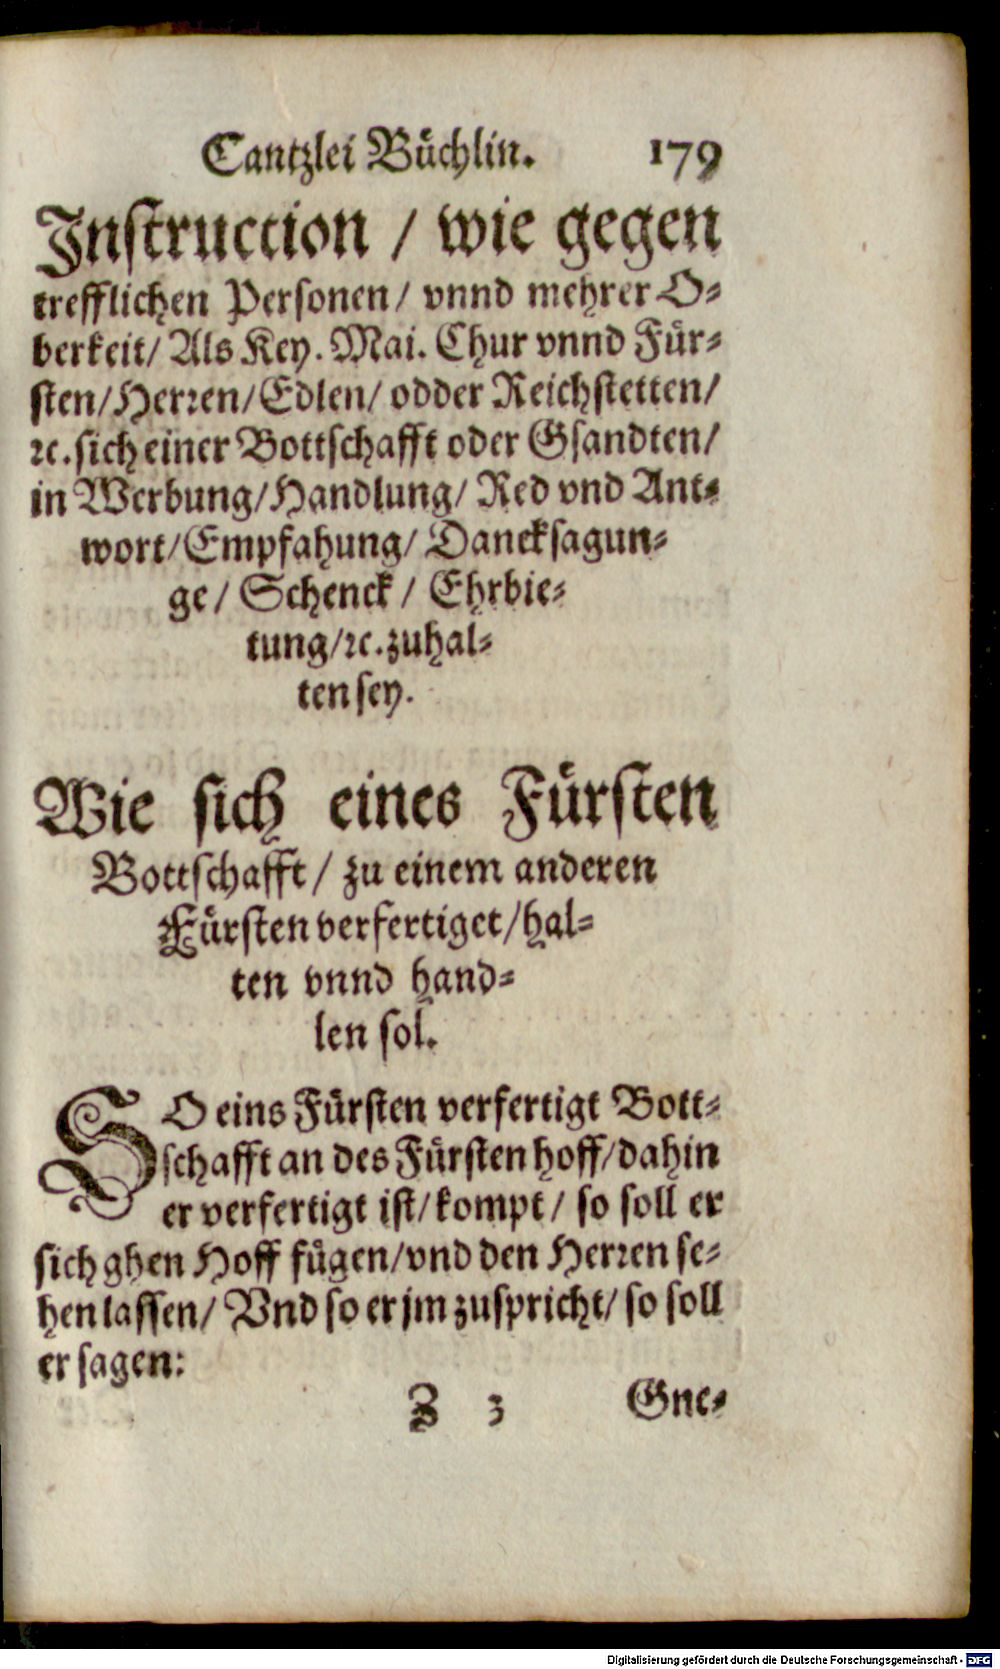 Cantzlei Bůchlin. 179
Jnſtruction / wie gegen
trefflichen Perſonen / vnnd mehrer O⸗
berkeit / Als Key. Mai. Chur vnnd Fůr⸗
ſten / Herꝛen / Edlen / odder Reichſtetten /
ꝛc. ſich einer Bottſchafft oder Gſandten /
in Werbung / Handlung / Red vnd Ant⸗
wort / Empfahung / Danckſagun⸗
ge / Schenck / Ehrbie⸗
tung / ꝛc. zuhal⸗
ten ſey.
Wie ſich eines Fůrſten
Bottſchafft / zu einem anderen
Fůrſten verfertiget / hal⸗
ten vnnd hand⸗
len ſol.
SO eins Fůrſten verfertigt Bott⸗
ſchafft an des Fůrſten hoff / dahin
er verfertigt iſt / kompt / ſo ſoll er
ſich ghen Hoff fůgen / vnd den Herꝛen ſe⸗
hen laſſen / Vnd ſo er jm zuſpricht / ſo ſoll
er ſagen:
Z 3 Gne⸗
Digitalisierung gefördert durch die Deutsche Forschungsgemeinschaft - DFG